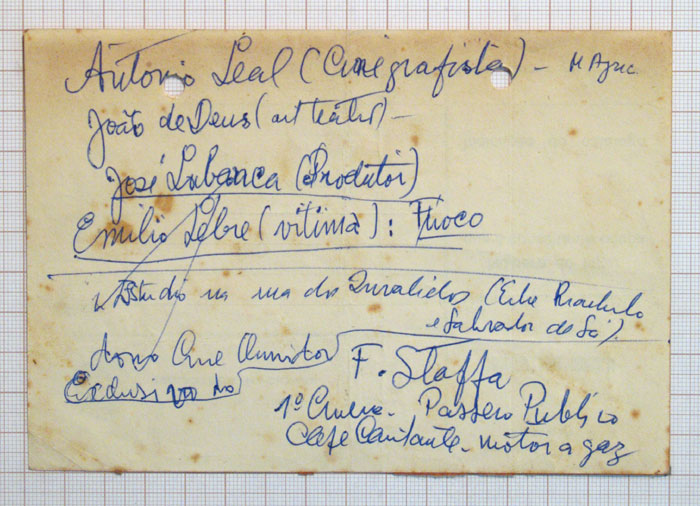 Antonio Leal (Cinegrafista) -
João de Deus (art teatro) -
José Labanca (Produtor)
Emilio Lebre (vitima):
Estudio na rua dos Invalidos (Entre Riachuelo
e Salvador de Sá).
dono Cine
Exclusivo do
F. Staffa
1º Cinema - Passeio Publico
Café Cantante - motor a gaz